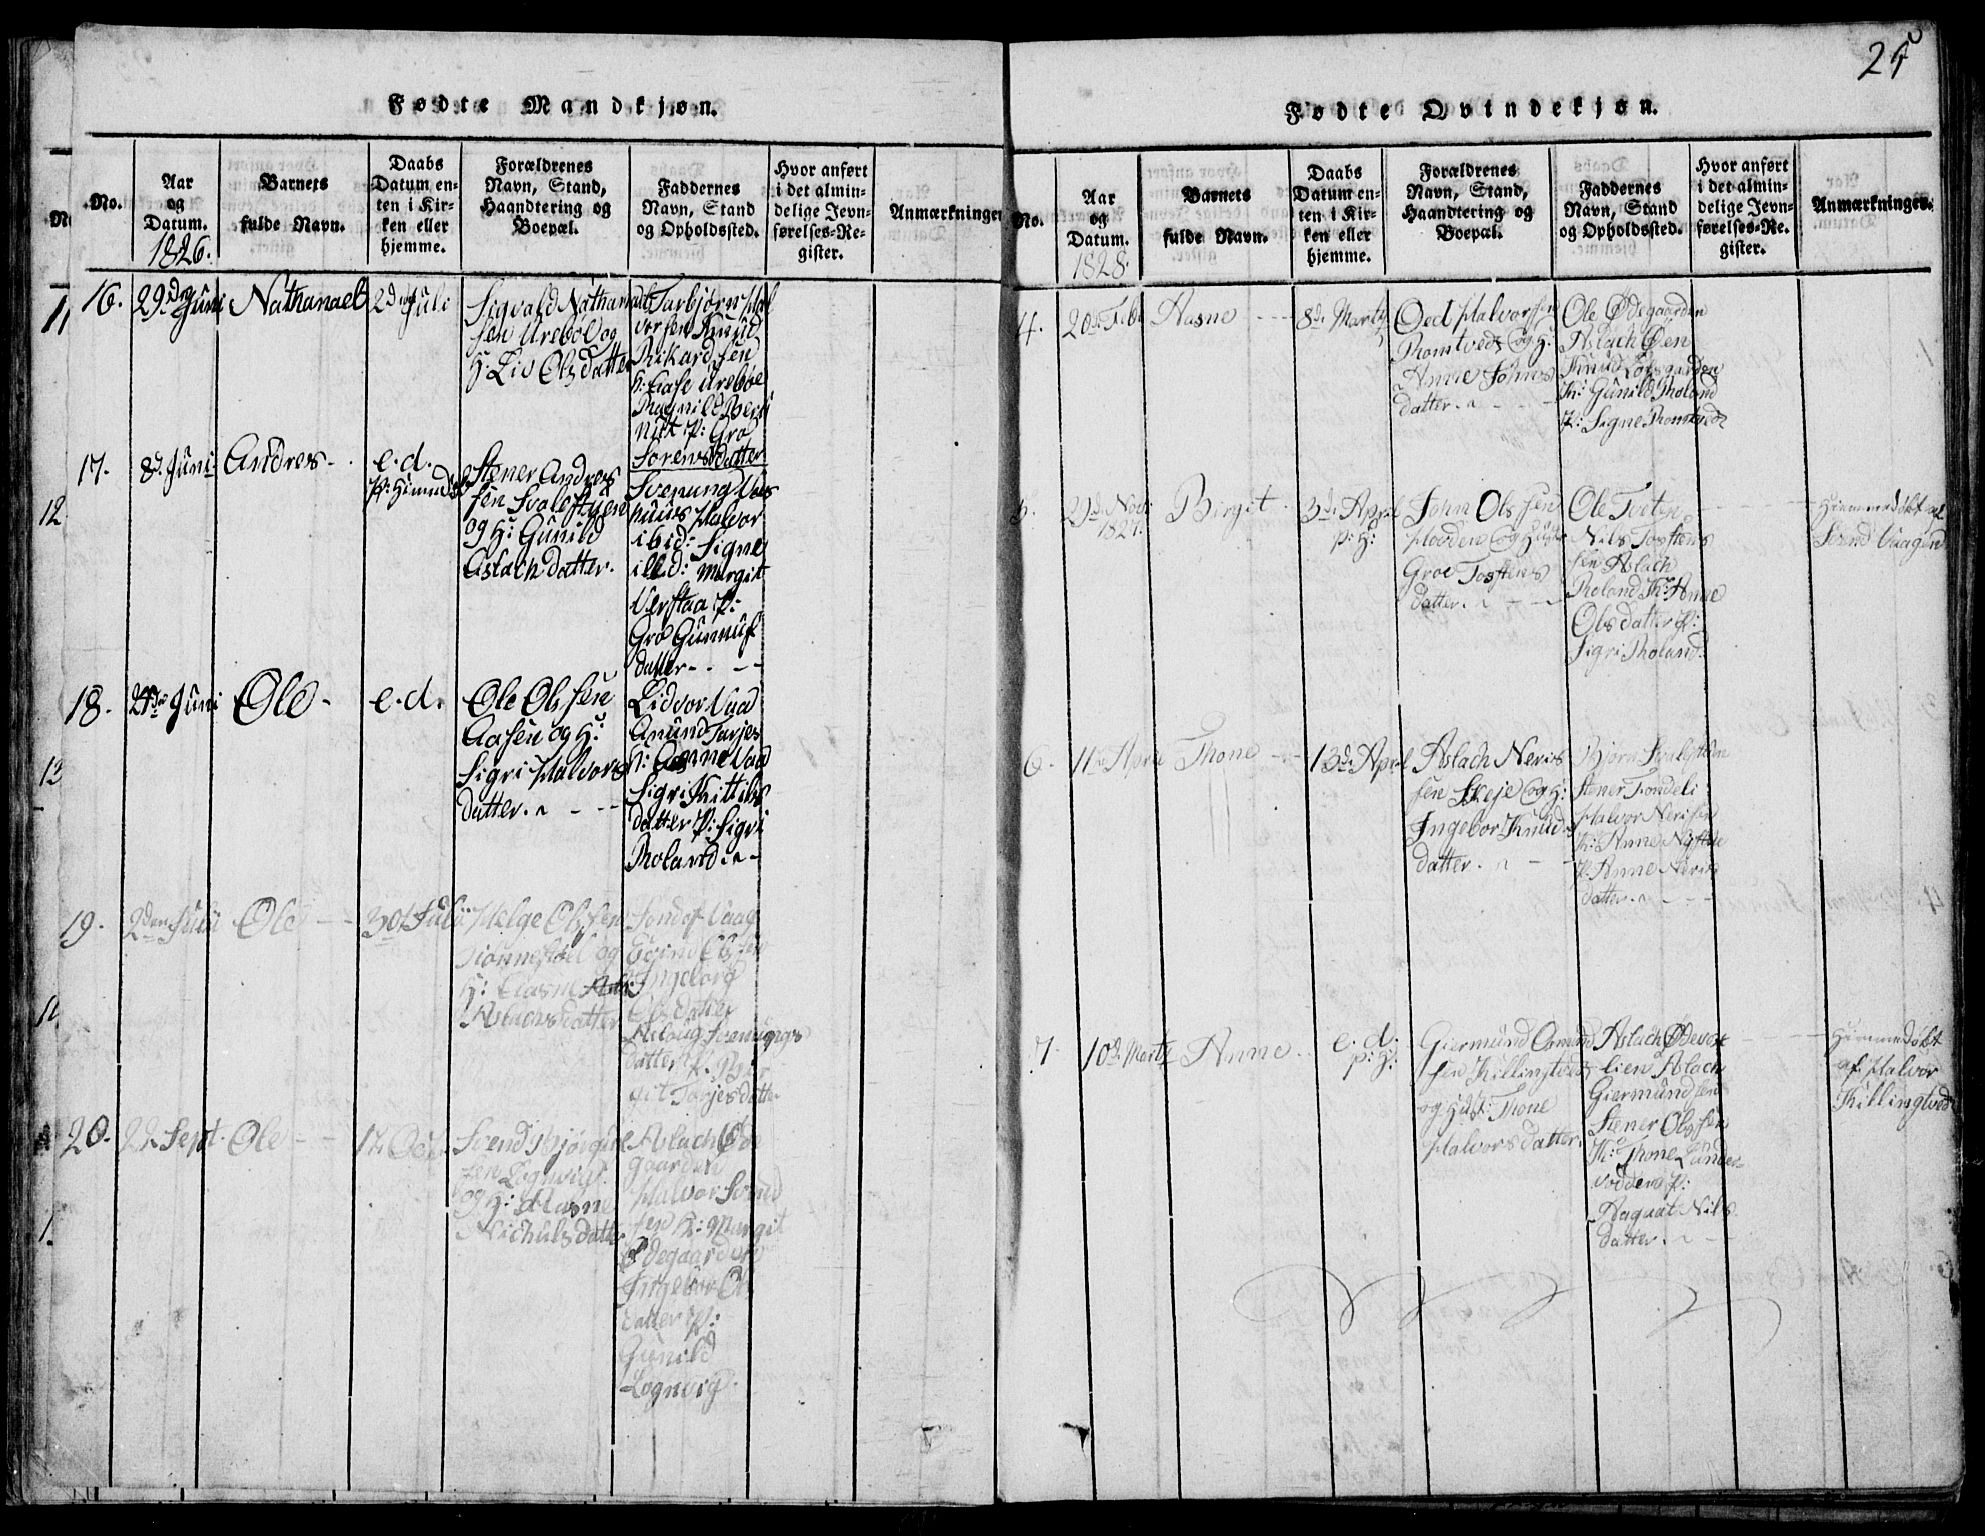 25
Fødte Mandkjøn.
No.
Aar
og
Datum.
1826.
Barnets
fulde Navn.
Daabs
Datum en-
ten i Kir-
ken eller
hjemme.
Forældrenes
Navn, Stand,
Haandtering og
Boepæl.
Faddernes
Navn, Stand
og Opholdssted.
Hvor anført
i det almin-
delige Jevn-
førelses-Re-
gister.
Anmærkninger
16.
29de Juni
Nathanael
2den Juli
Sigvald Nathanael
sen Urebø og
H: Liv Olsdatter
Tarbjørn Hal
vorsen Knud
Rikardsen
K: Aase Urebøe
Ragnild
P: Gro
Sorensdatter
17.
8de Juni
Andres -
e. d.
Stener Andres
sen
og H: Gunild
Aslachdatter.
Svenung
Halvor
ibid: Signe
ibid: Margit
P:
Gro Gunnuf
datter - - -
18.
24de Juni
Ole -
e. d.
Ole Olssen
Aasen og H:
Sigri Halvors
datter. - -
Lidvor Vaa
Anund Tarjes
K: Aasne Vaa
Sigri Kittils
datter P: Sigri
Roland -
19.
2den Juli
Ole - -
30t Juli
Helge Olssen
og
H: Aasne
Aslachsdatter
Sondof Vaag
Eivind Olssen
Ingeborg
Olsdatter
Aslaug Svenungs
datter P. Bir
git Tarjesdatter
20.
22de Sept.
Ole - -
17. Oct.
Svend Bjørguf
sen Lognvig
og H: Aasne
Nichulsdatter
Aslach Øde
gaarden
Halvor Svend
sen K: Margit
Ødegaarden
Ingebor Ols
datter P:
Gunild
Lognvig.
11
12
13
14
1.
Fødte Qvindekjøn.
No.
Aar
og
Datum.
1828.
Barnets
fulde Navn.
Daabs
Datum en-
ten i Kir-
ken eller
hjemme.
Forældrenes
Navn, Stand,
Haandtering og
Boepæl.
Faddernes
Navn, Stand
og Opholdssted.
Hvor anført
i det almin-
delige Jevn-
førelses-Re-
gister.
Anmærkninger.
4.
20de Feb:
Aasne - -
8de Marty
Oed Halvorsen
Romtvedt og H:
Anne Johns
datter. - - -
Ole Ødegaarden
Aslach Øen
Knud Loftsgaarden
K: Gunild Roland
P: Signe Romtvedt
5.
29de Nov:
1827.
Birgit -
3de April
P: H:
John Olssen
Hodden og Hustr
Groe Tostens
datter. - -
Ole Tveten
Nils Tostens
sen Aslach
Roland K: Anne
Olsdatter P:
Sigri Roland.
Hiemmedøbt af
Svend Vaagen
6.
11te April
Thone - -
13de April
Aslach Neris
sen Skeje og H:
Ingebor Knuds
datter. - -
Bjørn
Stener Tondeli
Halvor Nerisen
K: Anne
P. Anne Neris
datter. - - -
7.
10de Marty
Anne -
e. d.
P: H:
Giermund Osmund
sen Killingtvedt
og Hust: Thone
Halvorsdatter.
Aslach Ødevas
lien Aslach
Giermundsen
Stener Olssen
K: Thone Sunder
vodden P:
Aagaat Nils
datter. - -
Hiemmedøbt
af Halvor
Killingtvedt